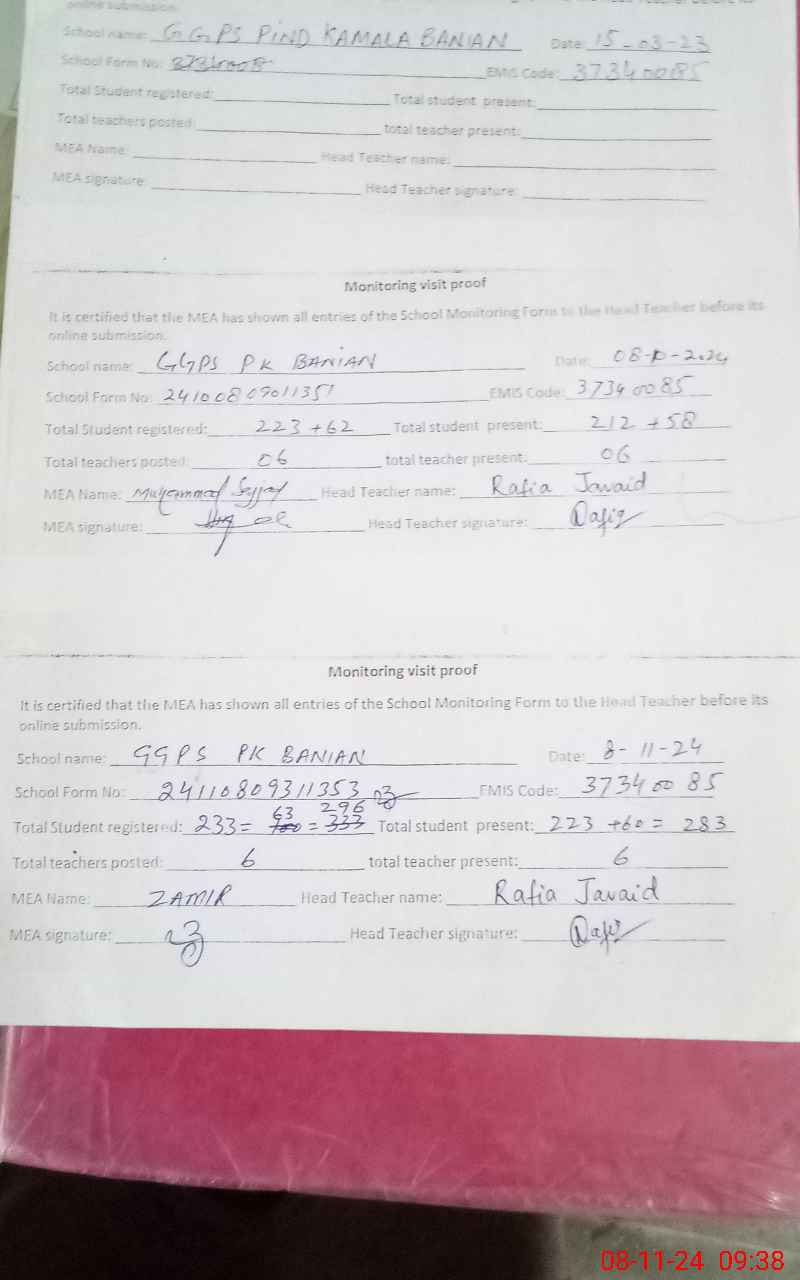 online submission.
School name: GGPS PIND KAMALA BANIAN Date: 15-03-23
School Form No: EMIS Code: 37340085
Total Student registered: Total student present:
Total teachers posted: total teacher present:
MEA Name: Head Teacher name:
MEA signature: Head Teacher signature:
Monitoring visit proof
It is certified that the MEA has shown all entries of the School Monitoring Form to the Head Teacher before its
online submission.
School name: GGPS PK BANIAN Date: 08-10-2024
School Form No: 24100809011351 EMIS Code: 37340085
Total Student registered: 223+62 Total student present: 212+58
Total teachers posted: 06 total teacher present: 06
MEA Name: Muhammad Head Teacher name: Rafia Javaid
MEA signature: Head Teacher signature: Rafia
Monitoring visit proof
It is certified that the MEA has shown all entries of the School Monitoring Form to the Head Teacher before its
online submission.
School name: GGPS PK BANIAN Date: 8-11-24
School Form No: 24110809311353 EMIS Code: 37340085
63 296
Total Student registered: 233= = 333 Total student present: 223+60= 283
Total teachers posted: 6 total teacher present: 6
MEA Name: ZAMIR Head Teacher name: Rafia Javaid
MEA signature: Head Teacher signature: Rafia
08-11-24 09:38